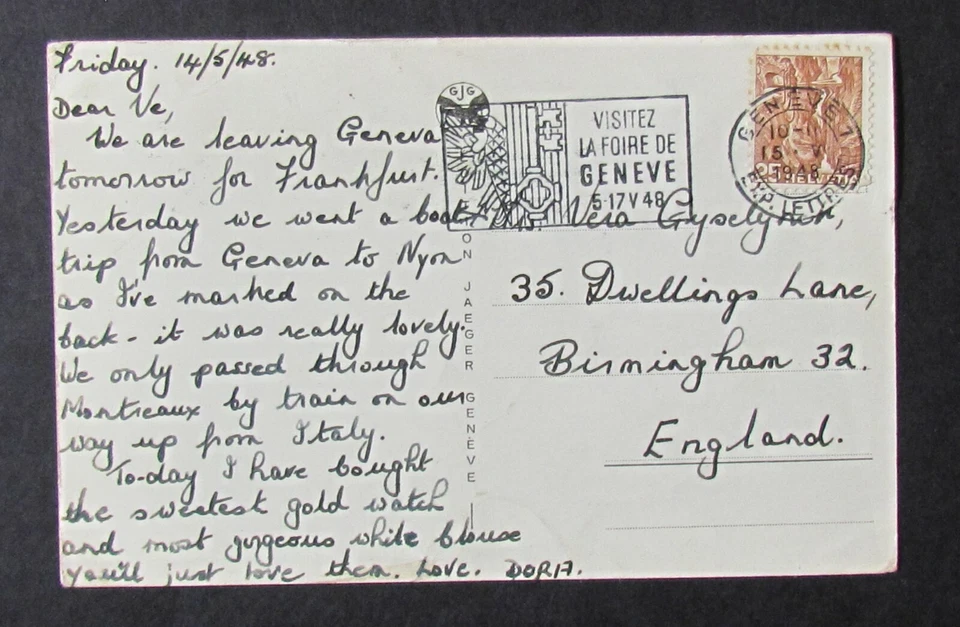 Friday. 14/5/48.
Dear Ve,
We are leaving Geneva
tomorrow for Frankfurt.
Yesterday we went a boat
trip from Geneva to Nyon
as I've marked on the
back - it was really lovely.
We only passed through
Montreaux by train on our
way up from Italy.
To-day I have bought
the sweetest gold watch
and most gorgeous white blouse
You'll just love them. Love. DORA.
GJG
JAEGER GENÈVE
VISITEZ
LA FOIRE DE
GENEVE
5-17 V 48
GENÈVE 7
15. V
1948
EXP. LETTRES
Vera
35. Dwellings Lane,
Birmingham 32.
England.